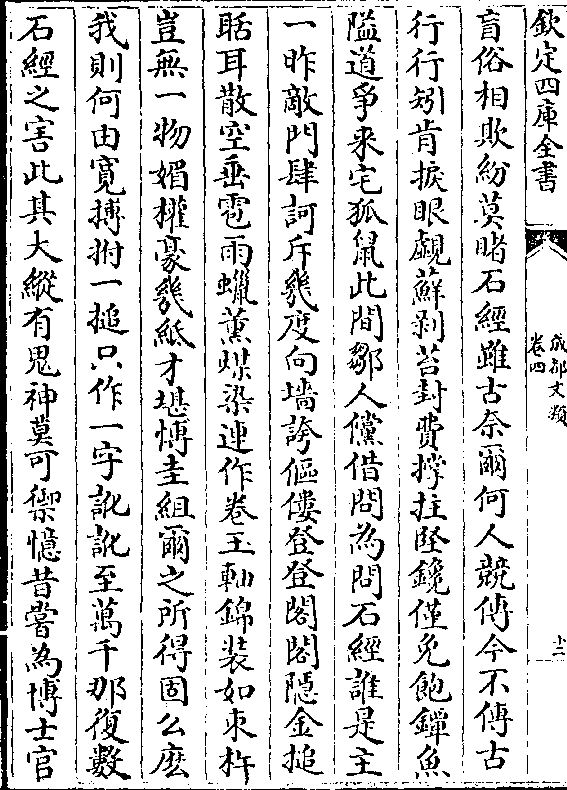 欽定四庫全書
成都文類
卷四
十二
盲俗相欺紛莫睹石經雖古奈爾何人競傳今不傳古
行行矧肯捩眼覷蘚剥苔封費撐拄壁鏡僅免飽蟫魚
隘道爭來宅狐鼠此間鄒人儻借問為問石經誰是主
一昨敵門肆訶斥幾度向墻誇傴僂登登閣閣隠金搥
聒耳散空垂雹雨蠟薫煤染連作卷玉軸錦装如束杵
豈無一物媚權豪幾紙才堪愽圭組爾之所得固么麽
我則何由寛搏拊一搥只作一字訛訛至萬千那復數
石經之害此其大縱有鬼神莫可禦憶昔嘗為博士官